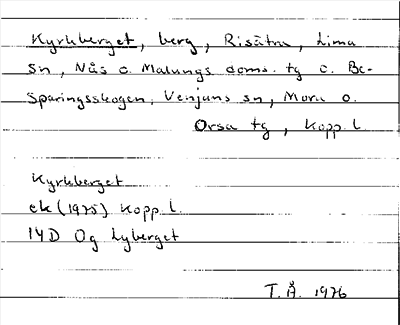 Kyrkberget, berg, Risätra, Lima
sn, Nås o. Malungs doms. tg o. Be-
sparingsskogen, Venjans sn, Mora o.
Orsa tg, Kopp. l.
Kyrkberget
ek (1975) Kopp l.
14D Og Lyberget
T.Å. 1976